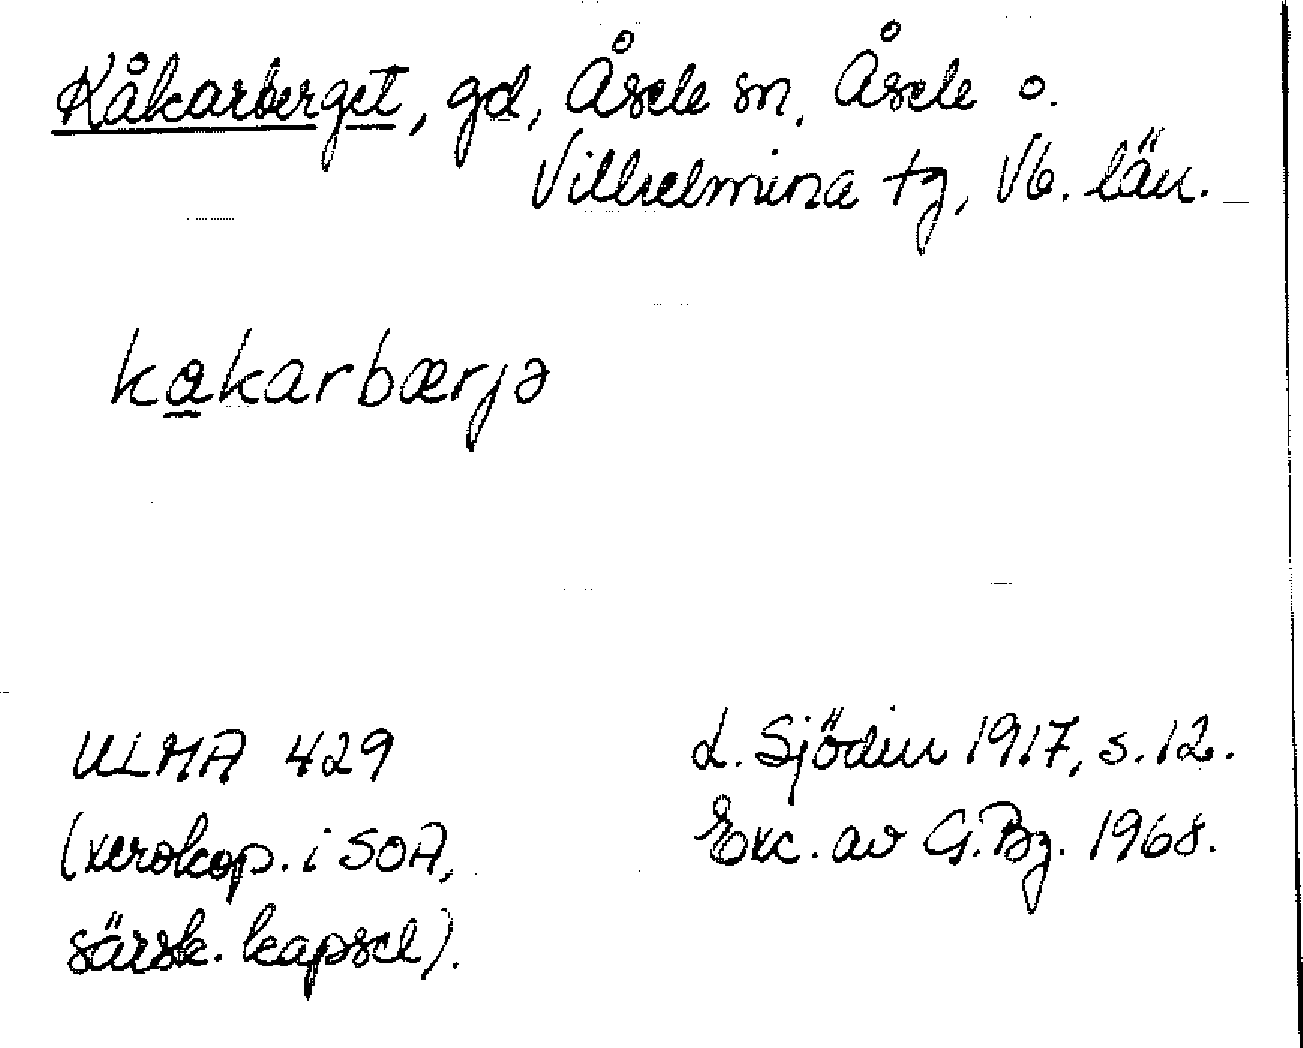 Kåkarberget, gd, Åsele sn, Åsele o.
Vilhelmina tg, Vb. län.
kakarbærjə
ULMA 429
(xerokop. i SOA,
särsk. kapsel).
L. Sjödin 1917, s. 12.
Exc. av G. Bg. 1968.